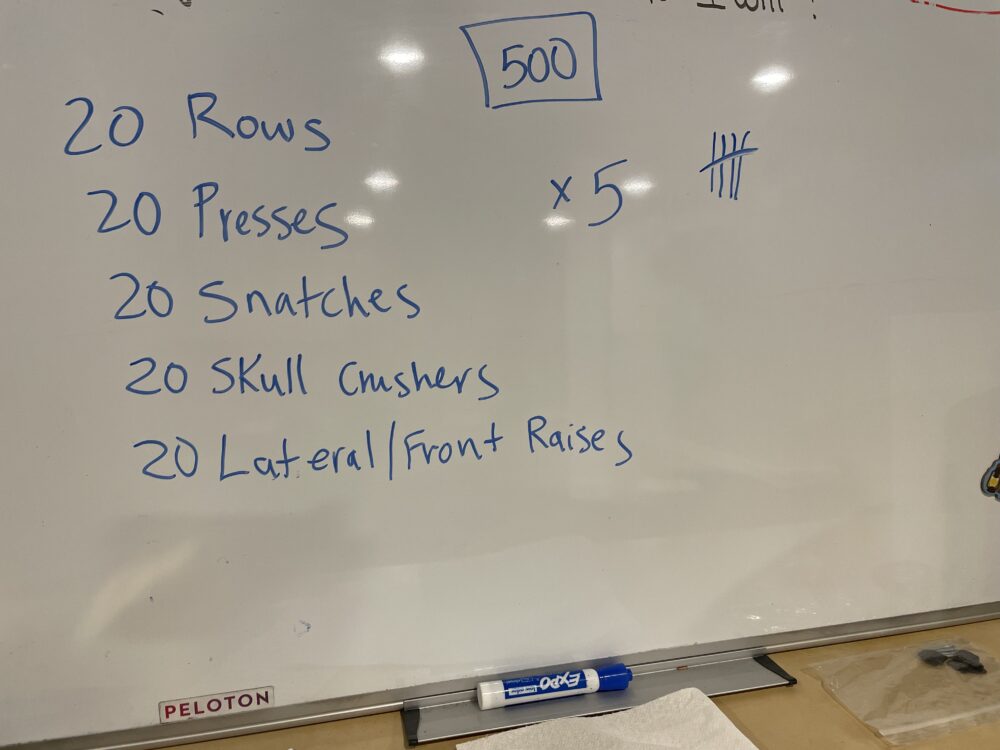 I will!
500
20 Rows
20 Presses
x 5
20 Snatches
20 Skull Crushers
20 Lateral/Front Raises
EXPO
PELOTON